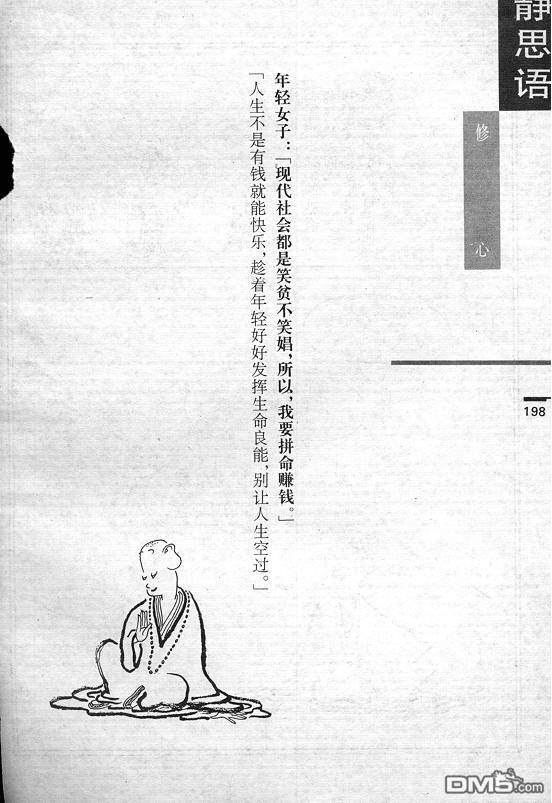 静思语
修心
年轻女子：「现代社会都是笑贫不笑娼，所以，我要拼命赚钱。」
「人生不是有钱就能快乐，趁着年轻好好发挥生命良能，别让人生空过。」
198
DM5.com